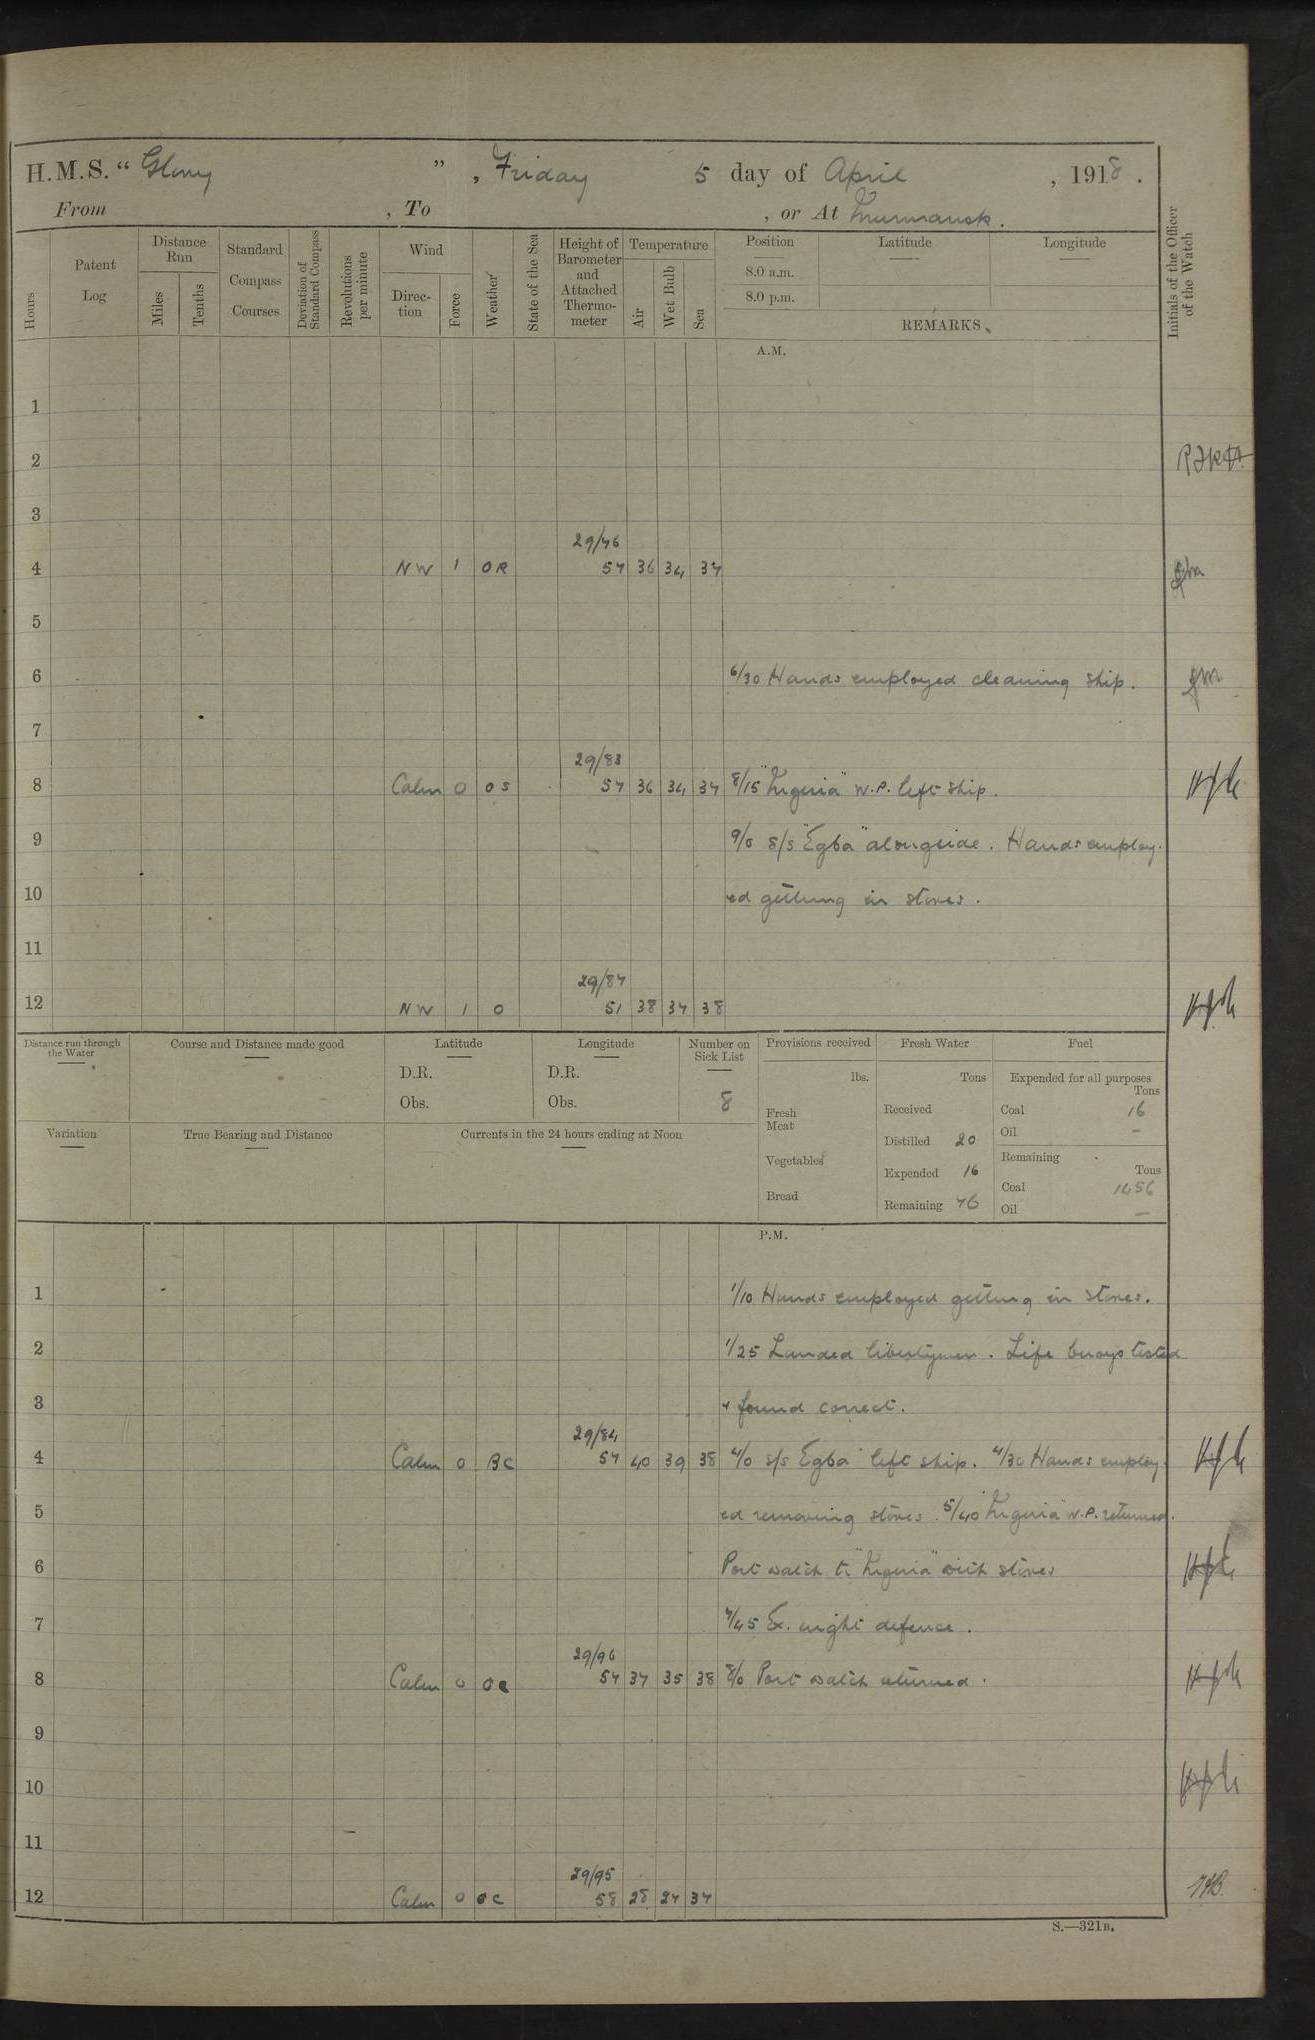 H.M.S. “ Glory ” , Friday 5 day of April , 1918 .
From , To , or At Murmansk .
Hours
Patent Log
Distance Run
Miles
Tenths
Standard Compass Courses
Deviation of Standard Compass
Revolutions per minute
Wind
Direc- tion
Force
Weather
State of the Sea
Height of Barometer and Attached Thermo- meter
Temperature
Air
Wet Bulb
Sea
Position
8.0 a.m.
8.0 p.m.
Latitude
Longitude
REMARKS.
Initials of the Officer of the Watch
A.M.
1
2
3
29/76
4 NW 1 OR 57 36 34 37
5
6 6/30 Hands employed cleaning ship.
7
29/83
8 Calm 0 OS 57 36 34 37 8/15 W.P. left ship.
9 9/0 S/S "Egba" alongside. Hands employ-
10 ed getting in stores.
11
29/87
12 NW 1 O 51 38 37 38
Distance run through the Water
Course and Distance made good
Latitude
D.R.
Obs.
Longitude
D.R.
Obs.
Number on Sick List
8
Provisions received
lbs.
Fresh Meat
Vegetables
Bread
Fresh Water
Tons
Received
Distilled 20
Expended 16
Remaining 76
Fuel
Expended for all purposes
Tons
Coal 16
Oil –
Remaining
Tons
Coal 1456
Oil –
Variation
True Bearing and Distance
Currents in the 24 hours ending at Noon
P.M.
1 1/10 Hands employed getting in stores.
2 1/25 Landed libertymen. Life buoys tested
3 + found correct.
29/84
4 Calm 0 BC 57 40 39 38 4/0 S/S "Egba" left ship. 4/30 Hands employ-
5 ed removing stores. 5/40 W.P. returned.
6 Port watch to with stores
7 7/45 Ex. night defence.
29/96
8 Calm 0 OC 57 37 35 38 8/0 Port watch returned.
9
10
11
29/95
12 Calm 0 OC 58 28 27 37
S.—321B.